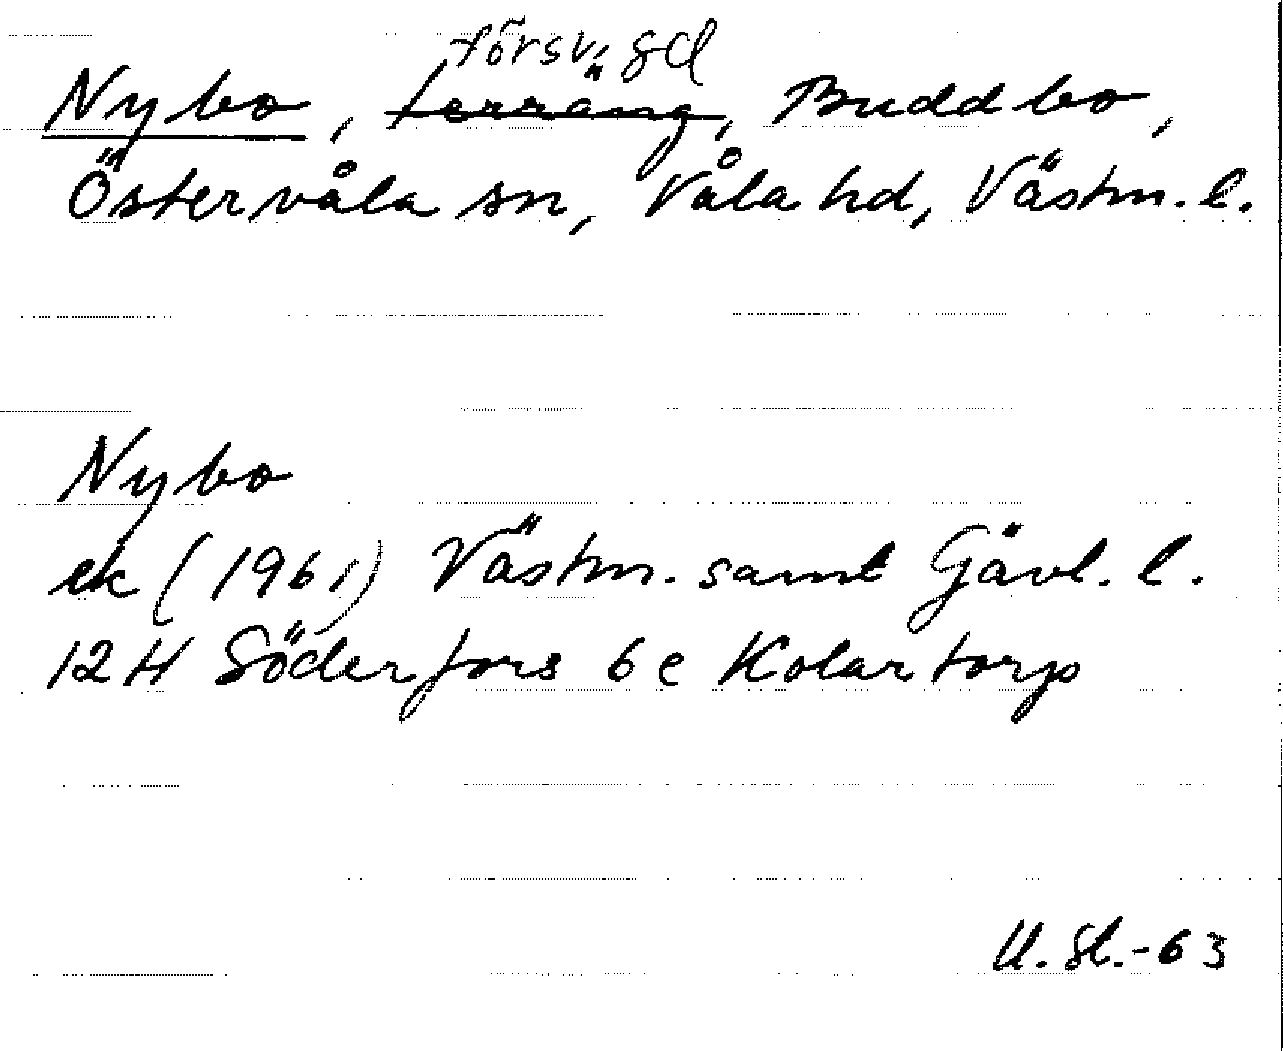 försv. gd
Nybo, terräng, Buddbo,
Östervåla sn, Våla hd, Västm. l.
Nybo
ek (1961) Västm. samt Gävl. l.
12H Söderfors 6e Kolartorp
U. Sl. -63